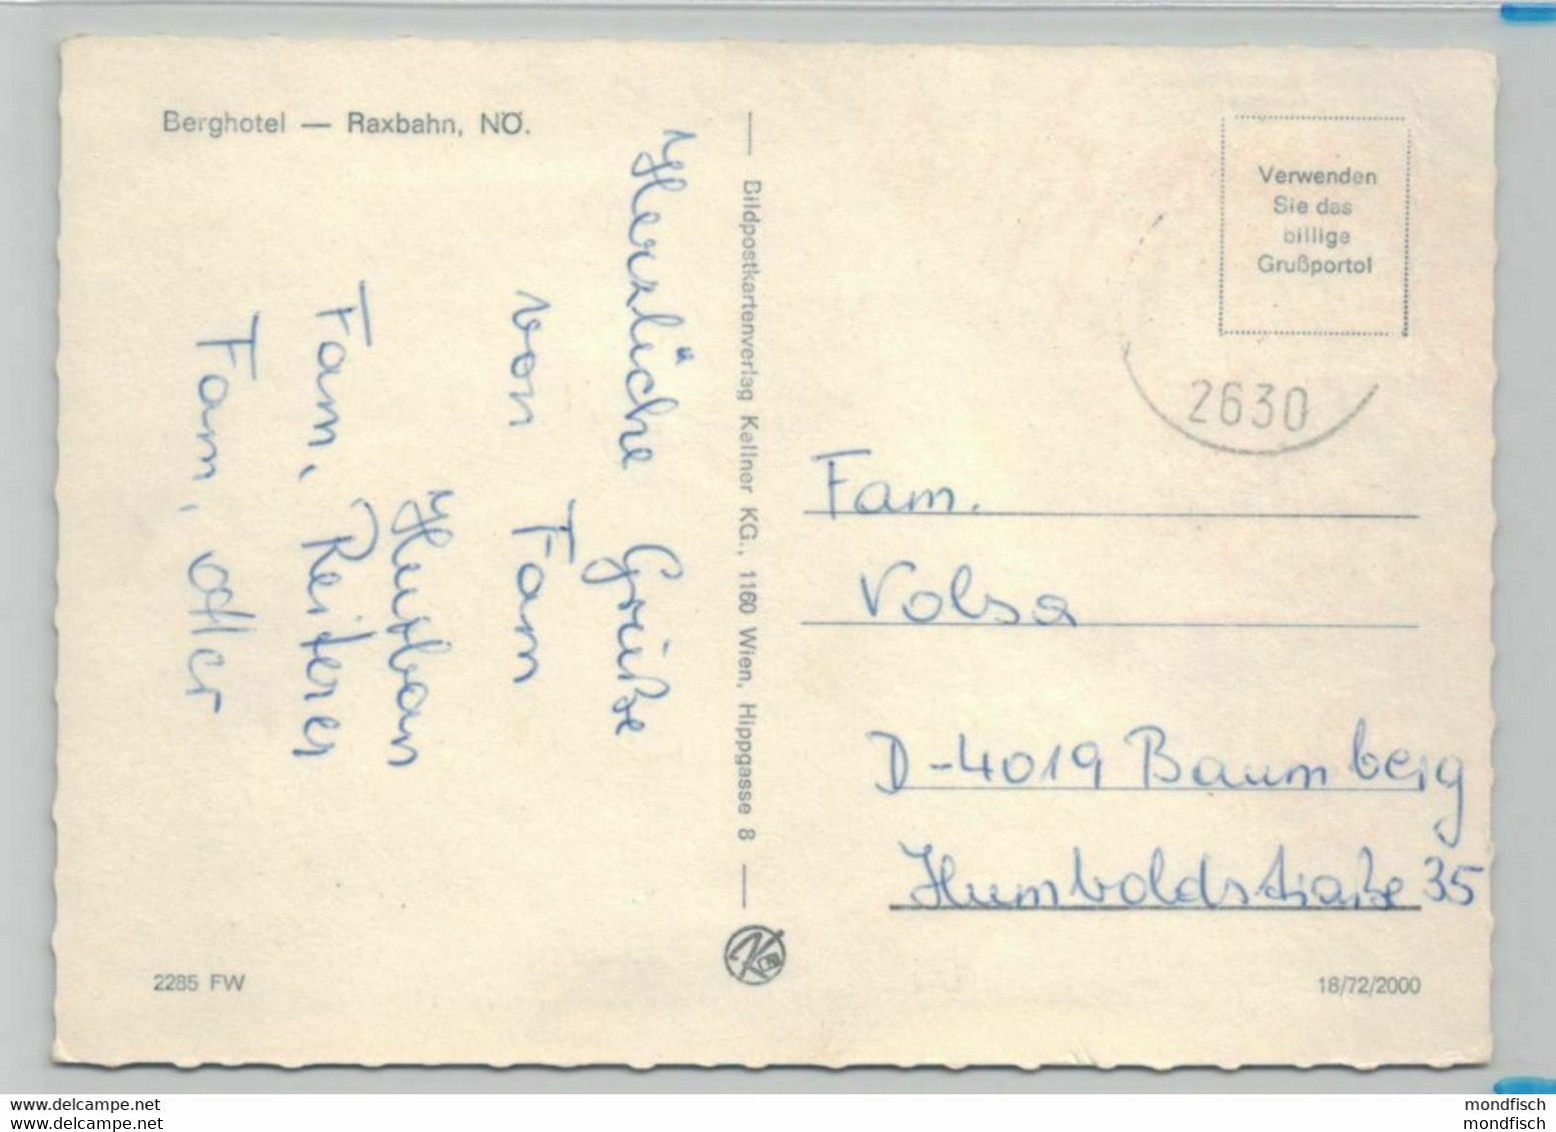 Berghotel — Raxbahn, NÖ.
Herzliche Grüße
von Fam
Hurban
Fam. Reiterer
Fam. Adler
Bildpostkartenverlag Kellner KG., 1160 Wien, Hippgasse 8
Verwenden
Sie das
billige
Grußportol
2630
Fam.
Volsa
D-4019 Baumberg
Humboldstraße 35
2285 FW
18/72/2000
www.delcampe.net
www.delcampe.net
mondfisch
mondfisch